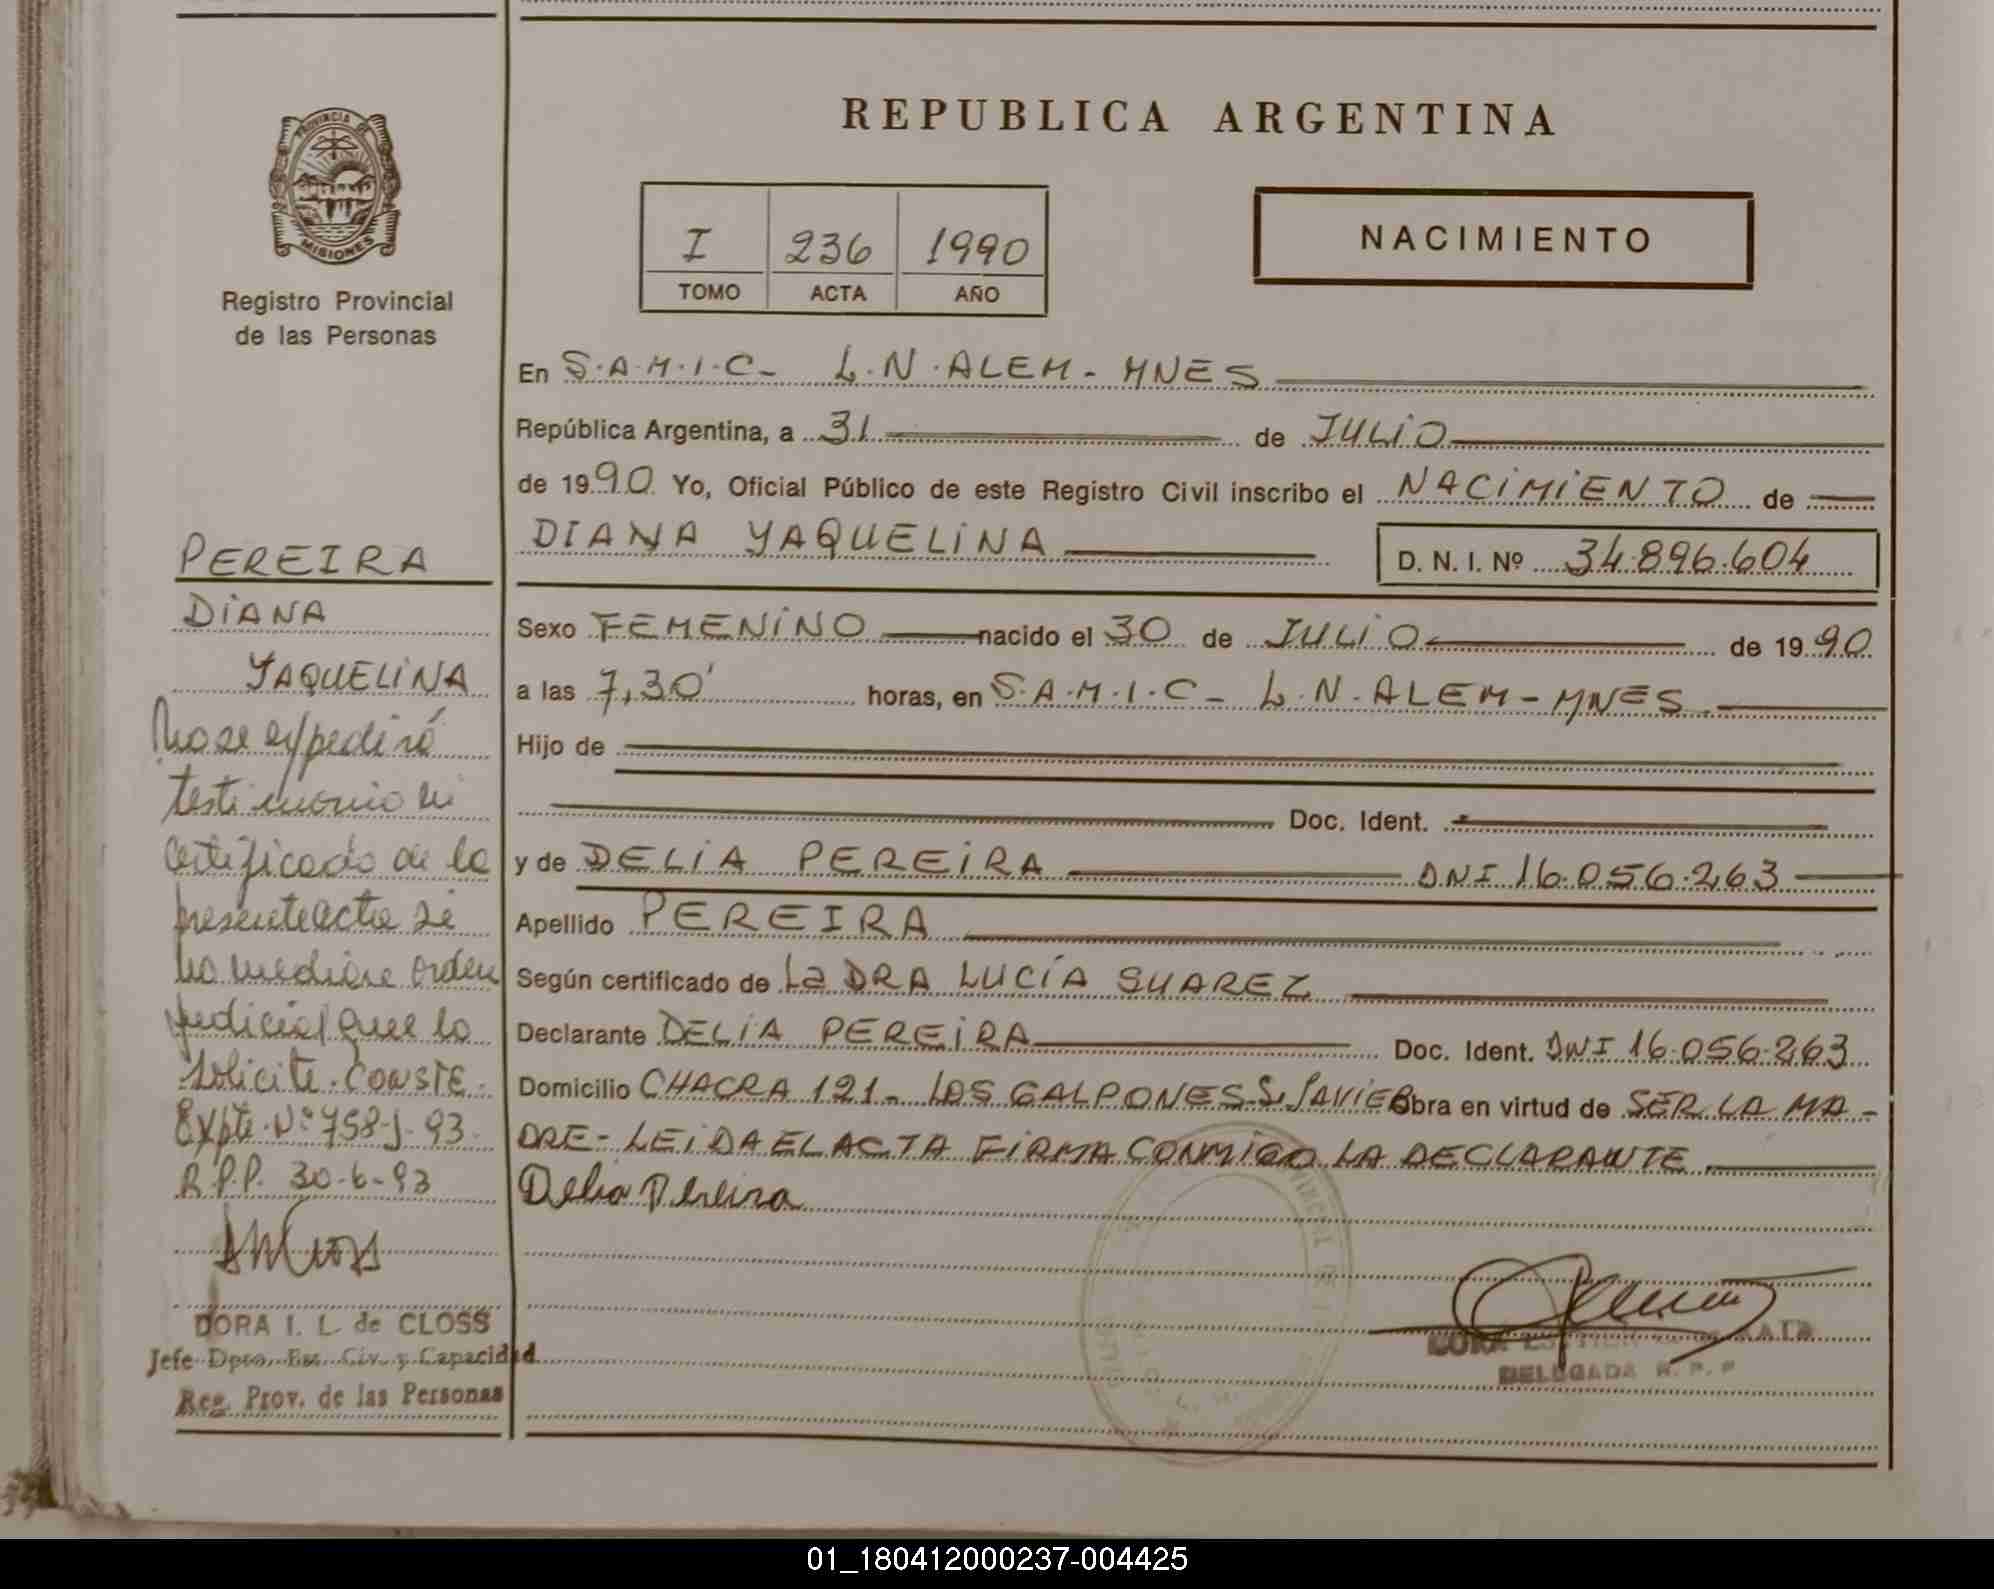 REPUBLICA ARGENTINA
PROVINCIA DE
MISIONES
Registro Provincial
de las Personas
I 236 1990
TOMO ACTA AÑO
NACIMIENTO
En S.A.M.I.C- L.N.ALEM-MNES
República Argentina, a 31 de JULIO
de 1990 Yo, Oficial Público de este Registro Civil inscribo el NACIMIENTO de
DIANA YAQUELINA D. N. I. Nº 34.896.604
Sexo FEMENINO nacido el 30 de JULIO de 1990
a las 7,30' horas, en S.A.M.I.C- L.N.ALEM-MNES
Hijo de
Doc. Ident.
y de DELIA PEREIRA DNI 16.056.263
Apellido PEREIRA
Según certificado de La DRA LUCÍA SUAREZ
Declarante DELIA PEREIRA Doc. Ident. DNI 16.056.263
Domicilio CHACRA 121- LOS GALPONES-S.JAVIER Obra en virtud de SER LA MA-
DRE- LEIDA EL ACTA FIRMA CONMIGO LA DECLARANTE
Delia Pereira
DELEGADA R. P. P
PEREIRA
DIANA
YAQUELINA
No se expedirá
testimonio ni
certificado de la
presente acta si
no mediare orden
judicial que lo
solicite. CONSTE.
Expte. Nº 758-J-93.
R.P.P. 30-6-93
DORA I. L de CLOSS
Jefe Dpto. Est. Civ. y Capacidad
Reg. Prov. de las Personas
01_180412000237-004425